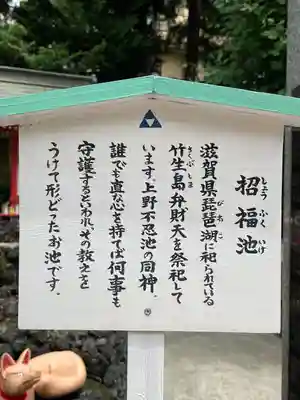 招福池
しょうふくいけ
滋賀県琵琶湖に祀られている
びわこ
竹生島弁財天を祭祀して
さくぶしま
います。上野不忍池の同神。
誰でも直な心を持てば何事も
守護するといわれ、その教えを
うけて形どったお池です。